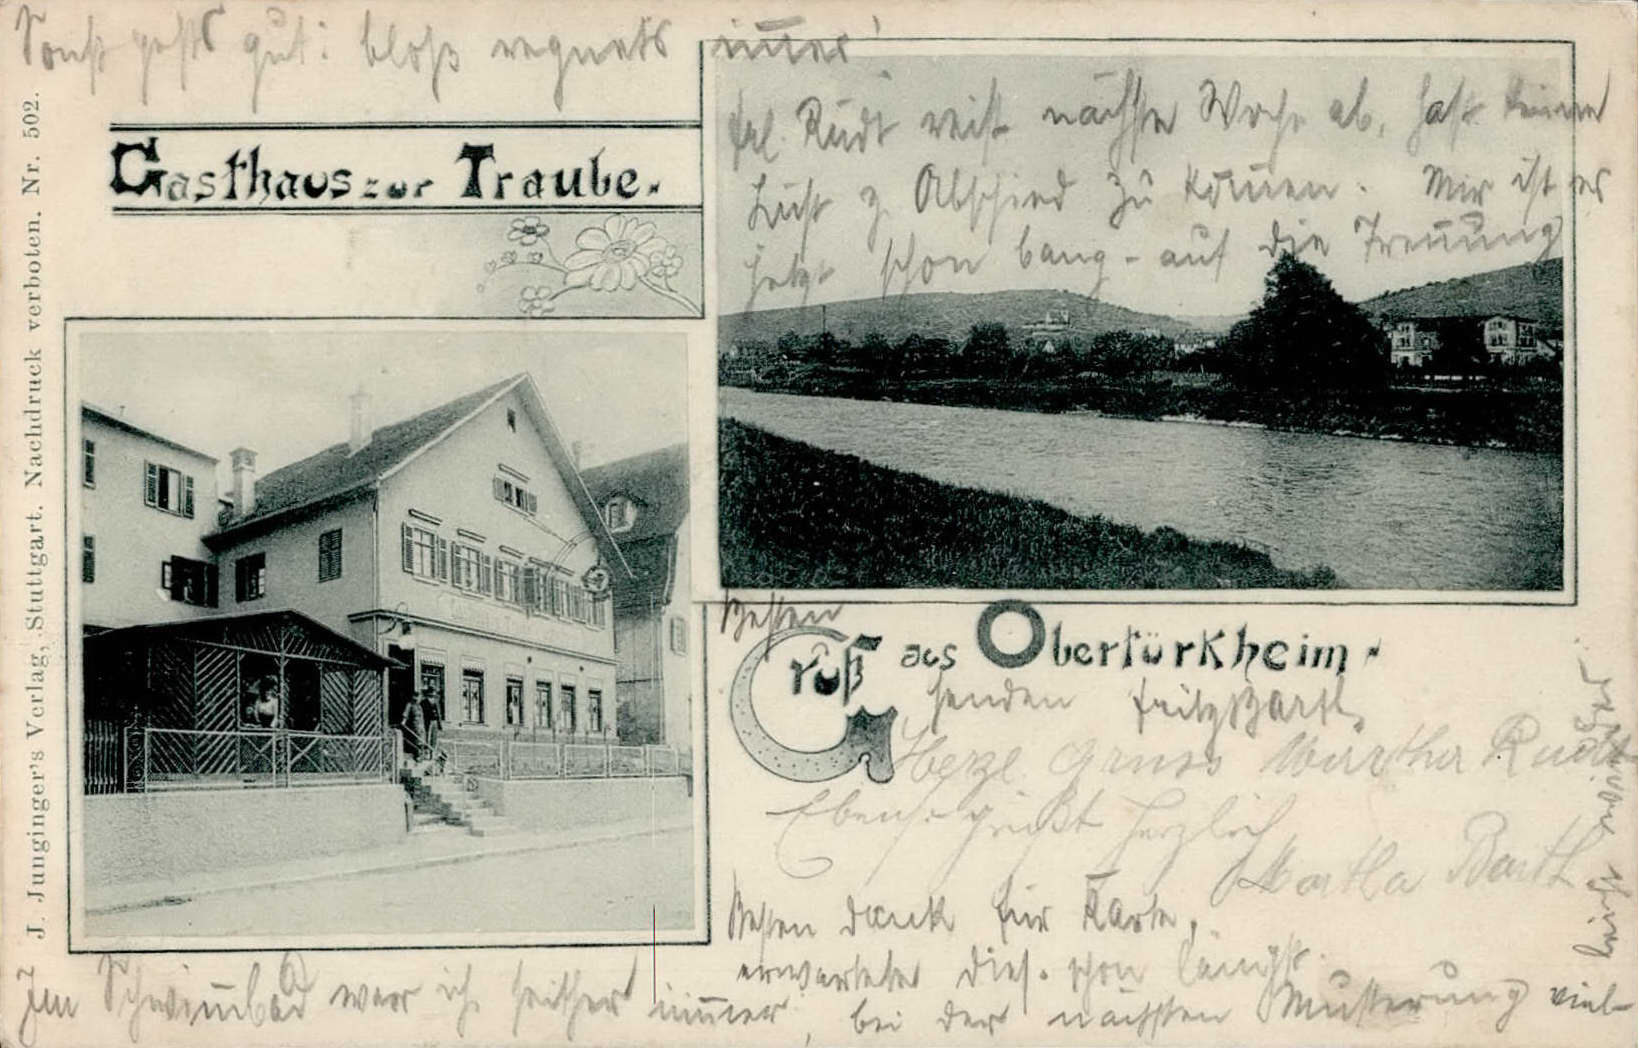 Sonst gehts gut: bloß regnets immer!
Gasthaus zur Traube.
Frl. Rudt reist nächste Woche ab, hast keine
Lust z. Abschied zu kommen. Mir ist es
jetzt schon bang - auf die Trennung
J. Junginger's Verlag, Stuttgart. Nachdruck verboten. Nr. 502.
Besten
Gruß aus Obertürkheim
senden Fritz Barth
Herzl Gruss Martha Rudt
Ebenso grüßt herzlich
Martha Barth
Besten Dank für Karte,
erwartete dies. schon längst.
Im Schwimmbad war ich seither immer, bei der nächsten Musterung viel-